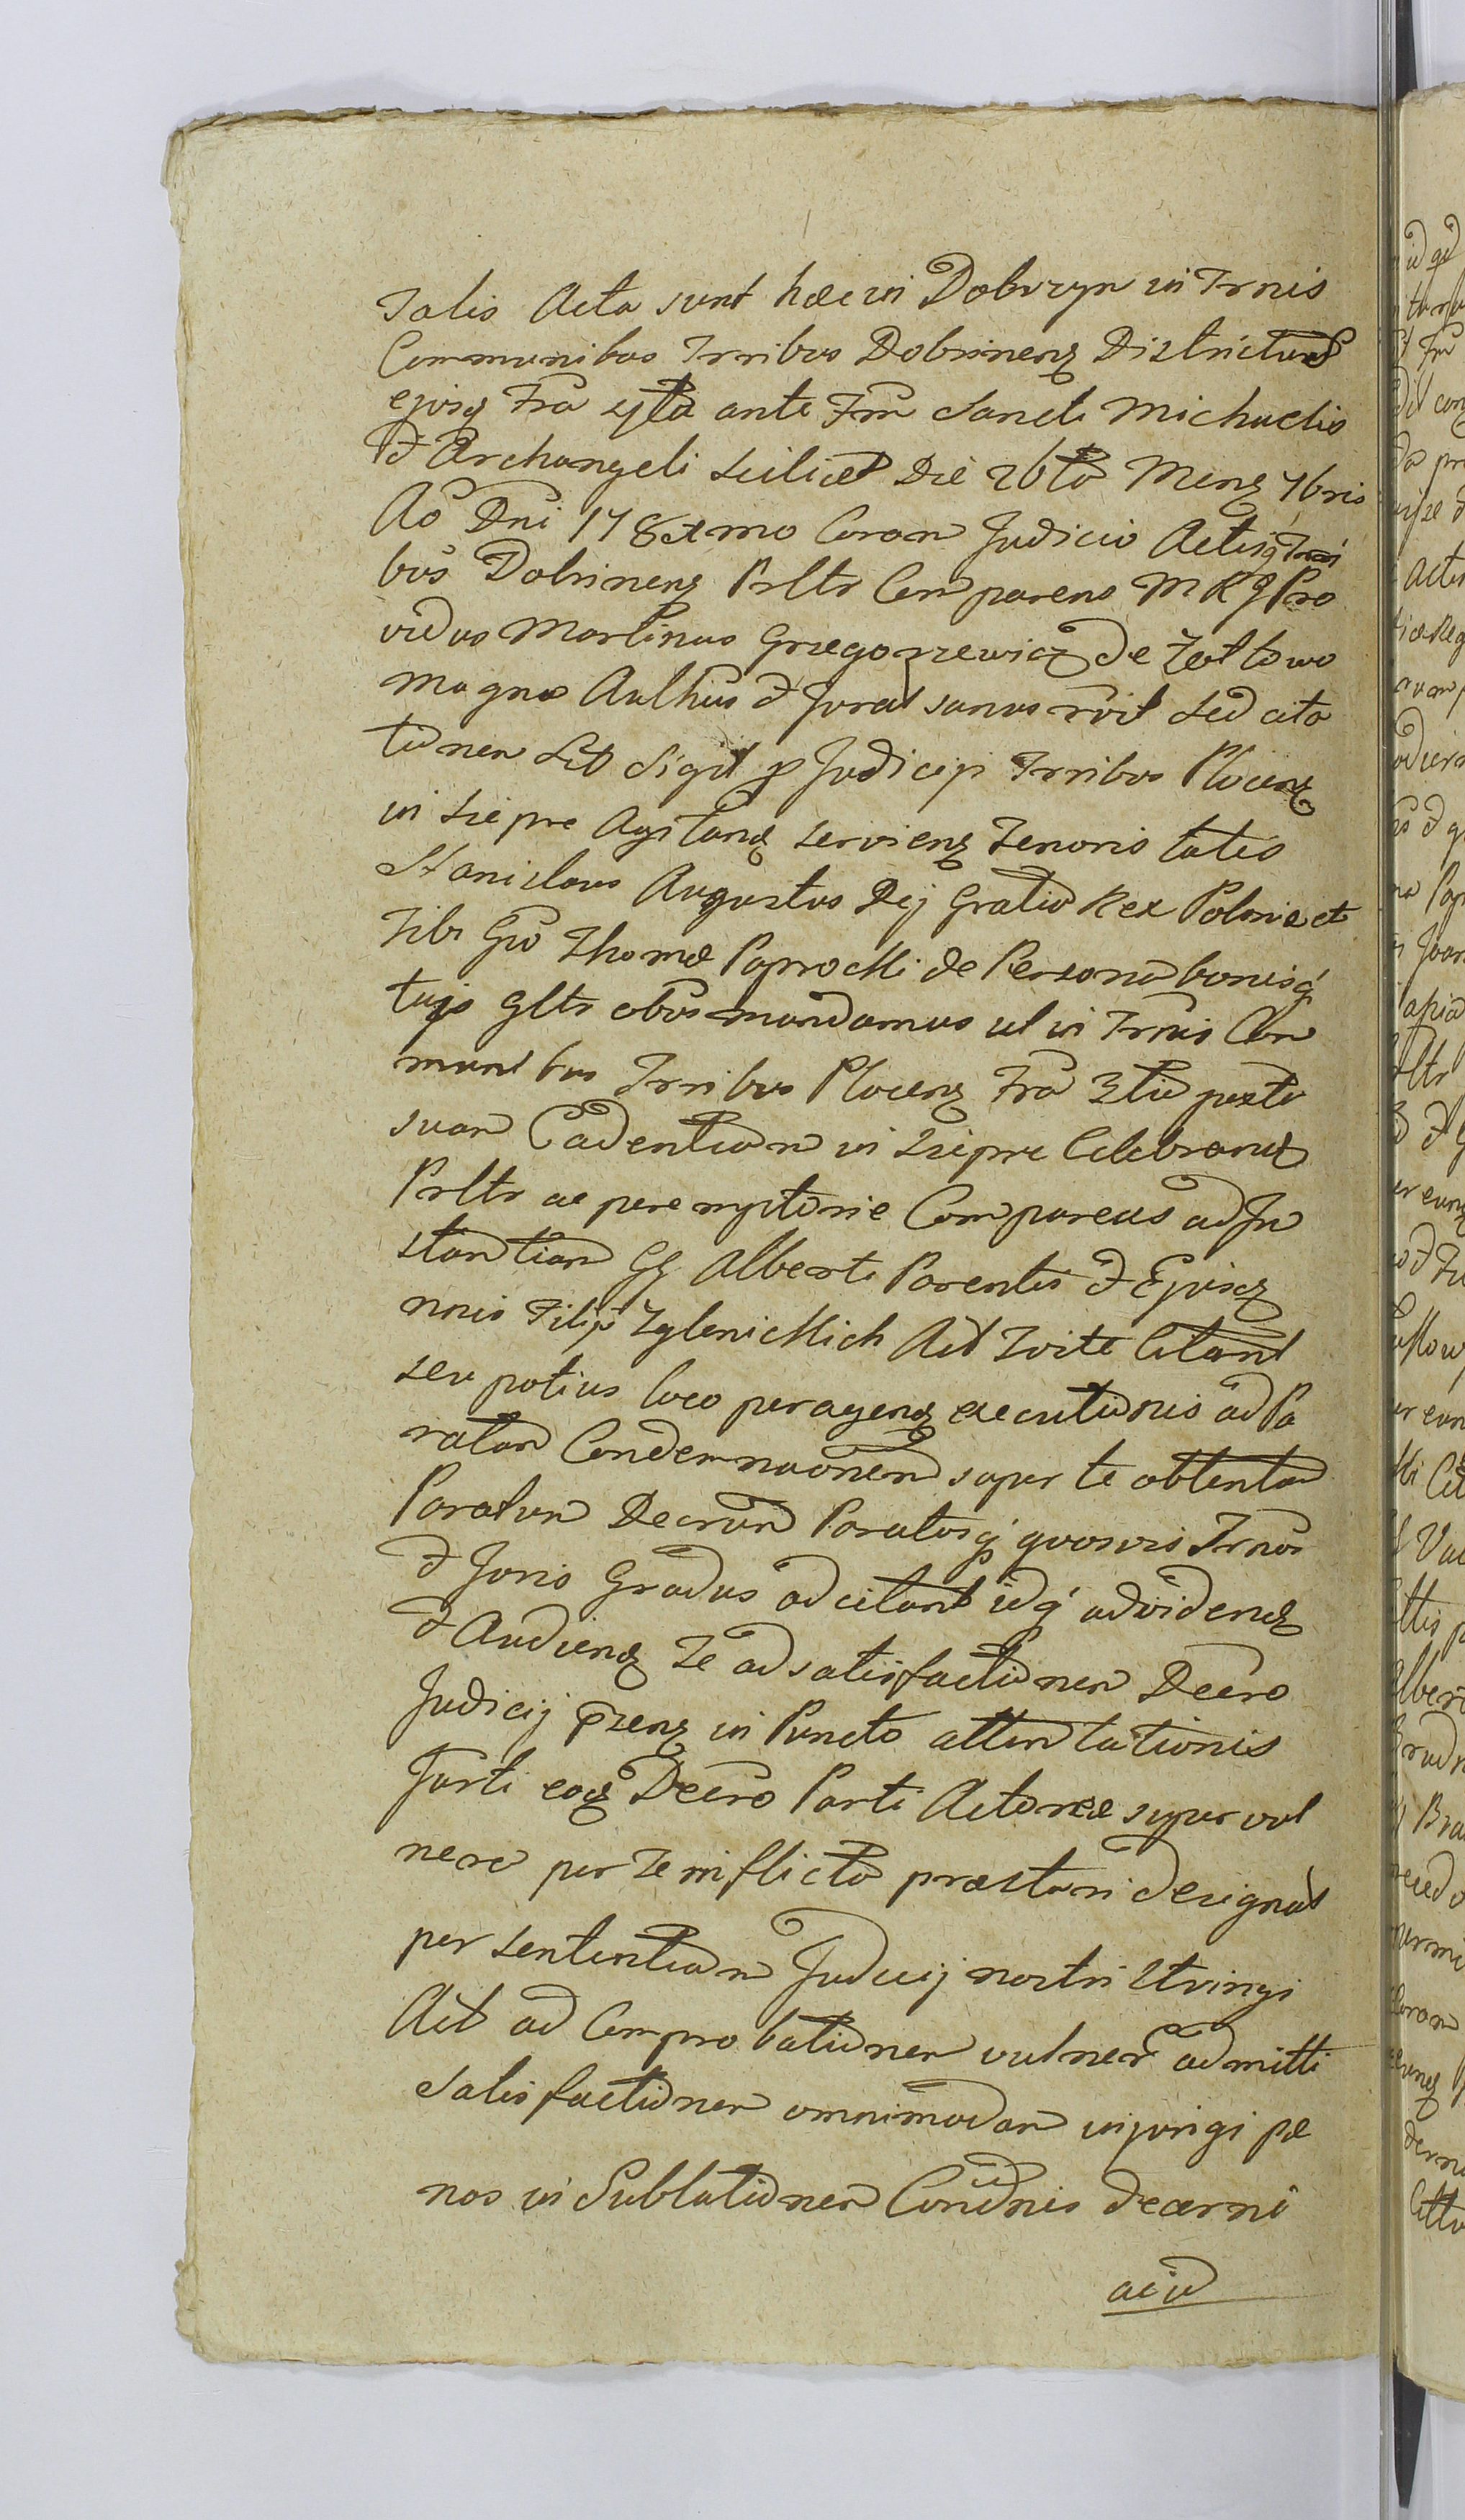 Talis Acta sunt haec in Dobrzyn in Trnis
Communibus Trribus Dobrinens Districtus
ejusq Fra 4ta ante Fm Sancti Michaelis
et Archangeli scilicet Die 26ta Mens 7bris
Ao Dni 178 Coram Judicio Actisq Trri
bus Dobrinens Prltr Comparens M R q Pro
vidus Martinus Grzegorzewicz de Zoltowo
magna Authus et Jurat sanus rvit Sed cita
tionem Litt Sigil p Judicijs Trribus Plocens
in Siepre Agitand serviens Tenoris talis
Stanislaus Augustus Dej Gratia Rex Poloniae et
Tibi Gso Thomae Paprocki de Persona bonisq
tuijs Gltr obus mandamus ut in Trnis Com
munibus Trribus Plocens Fra 3tia juxta
suam Cadentiam in Siepre Celebrand
Prltr ac peremptorie Compareas ad In
stantiam GG Alberti Parentis et Ejusd
nnis Filij Zglenickich Act Tvite Citant
seu potius loco peragend executionis ad Pa
ratam Condemnaonem super te obtentam
Paratum Decrum Paratosq quosvis Trnos
et Juris Gradus adcitant idq ad vidend
et Audiend Te ad satisfactionem Decro
Judicij pzens in Puncto attentationis
Jurti eoq Decro Parti Actoreae super vul
nera per Te inflicta praestari designat
per sententiam Judicij nostri Stringi
Act ad Comprobationem vulner admitti
Satisfactionem omnimodam injungi pae
nas in Sublationem Condnis decerni
ac id